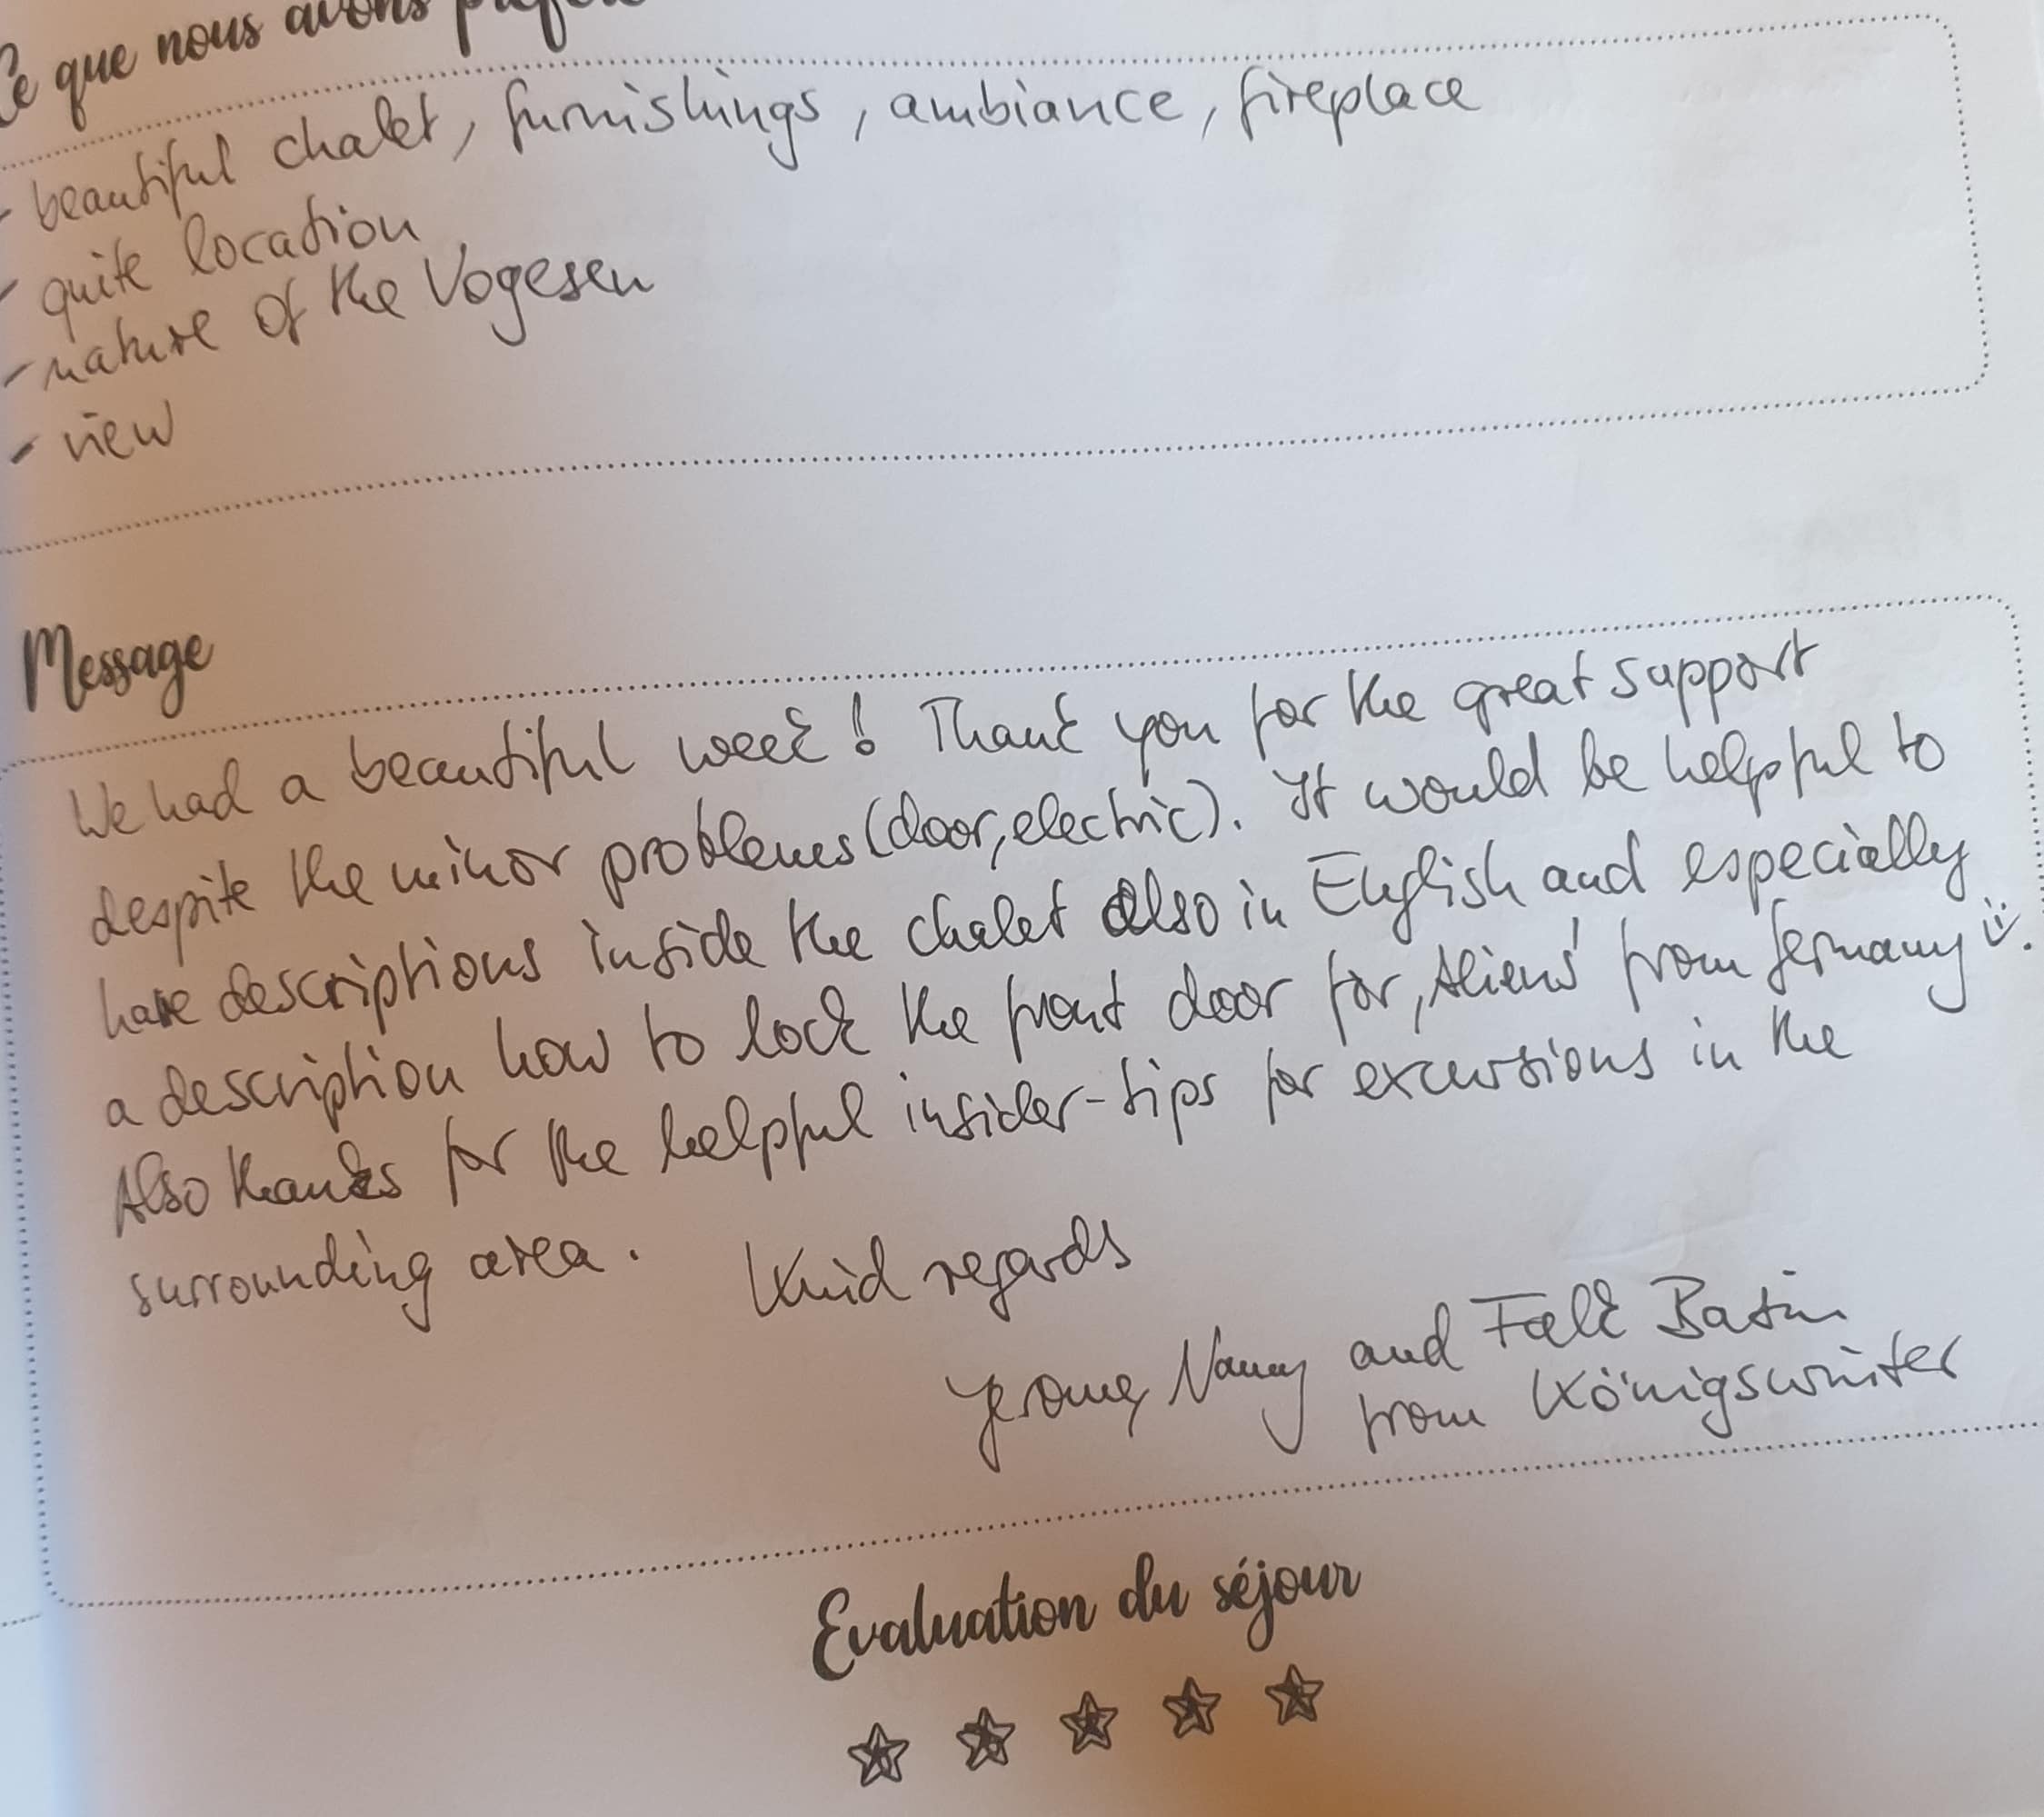 Ce que nous avons préféré
- beautiful chalet, furnishings, ambiance, fireplace
- quite location
- nature of the Vogesen
- view
Message
We had a beautiful week! Thank you for the great support
despite the minor problems (door, electric). It would be helpful to
have descriptions inside the chalet also in English and especially
a description how to lock the front door for ‚Aliens' from Germany ☺.
Also thanks for the helpful insider-tips for excursions in the
surrounding area. Kind regards
Jerome, Nancy and Falk
from Königswinter
Evaluation du séjour